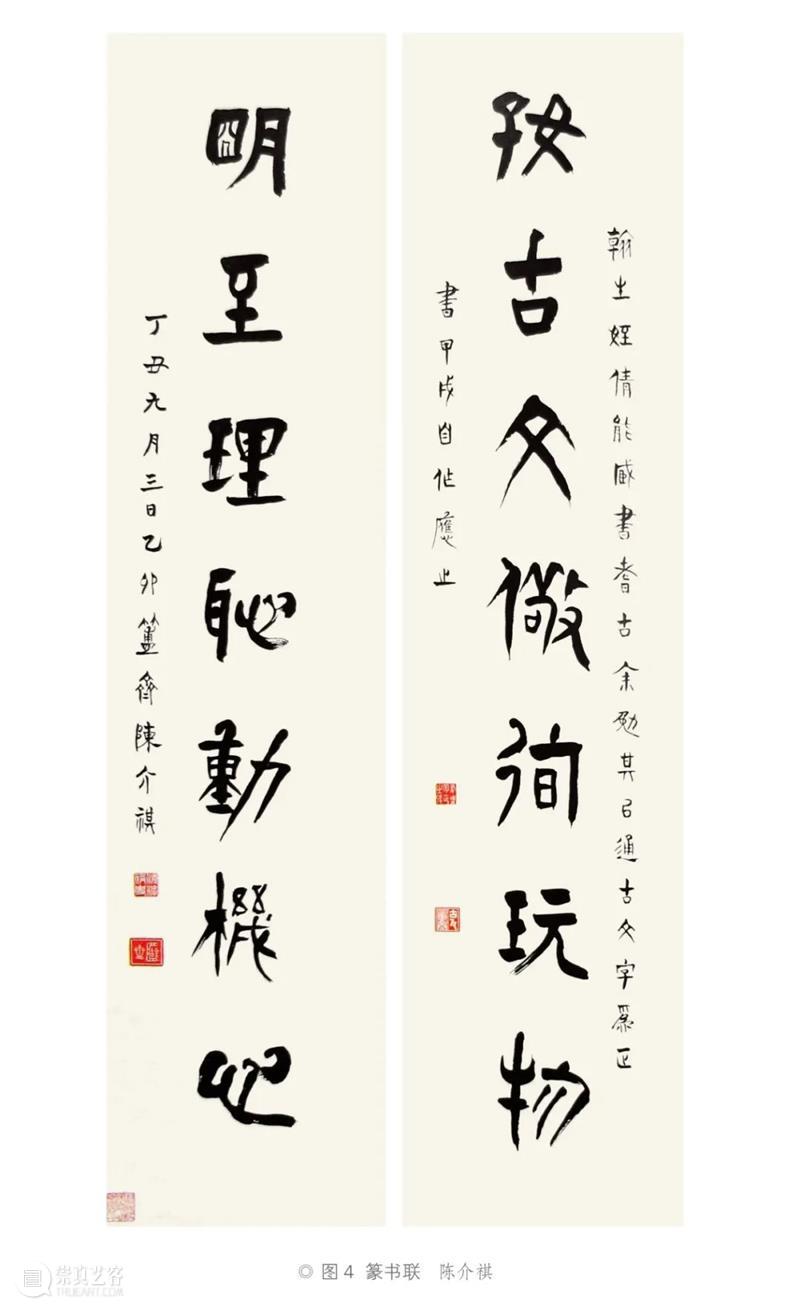 翰生姪倩能臧書耆古余勉其㠯通古文字爲正
好古文儆徇玩物
書甲戌自作應之
明至理恥動機心
丁丑九月三日乙卯簠齋陳介祺
◎ 图4 篆书联 陈介祺
崇真艺客